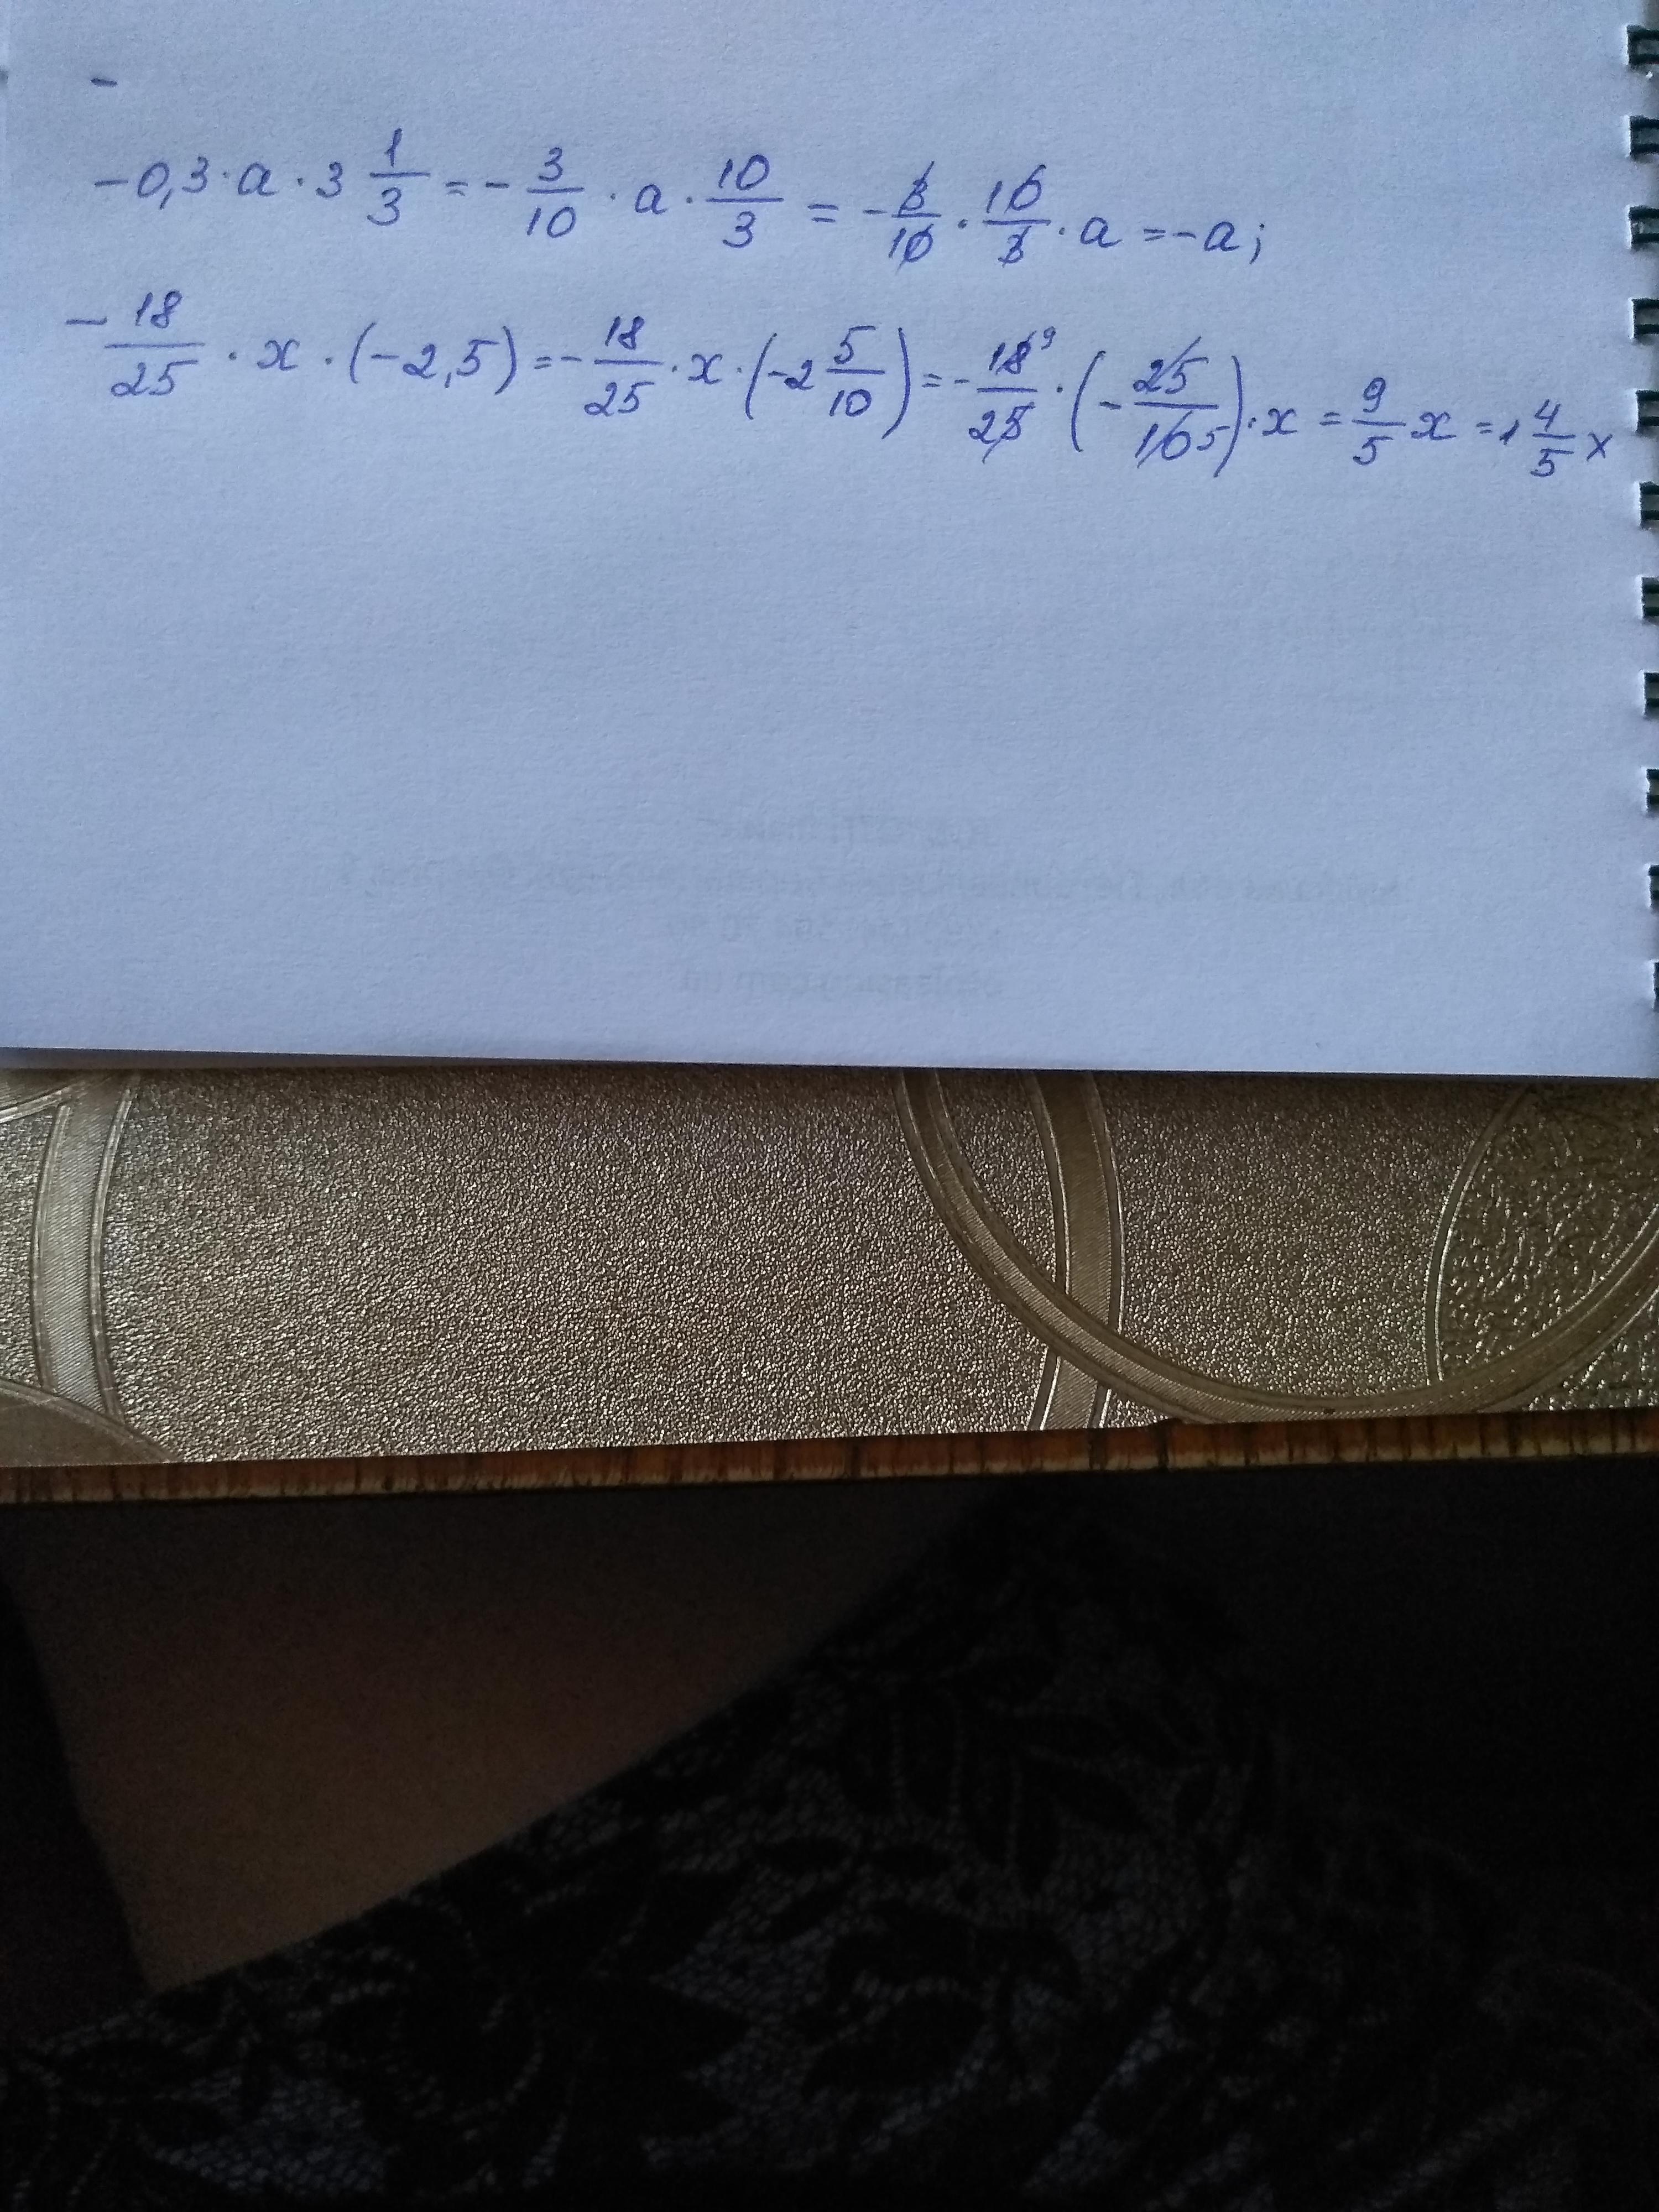 -
-0,3·a·3 1/3 = -3/10·a·10/3 = -3/10·10/3·a = -a;
-18/25·x·(-2,5) = -18/25·x·(-2 5/10) = -18 9/25·(-25/10 5)·x = 9/5 x = 1 4/5 x